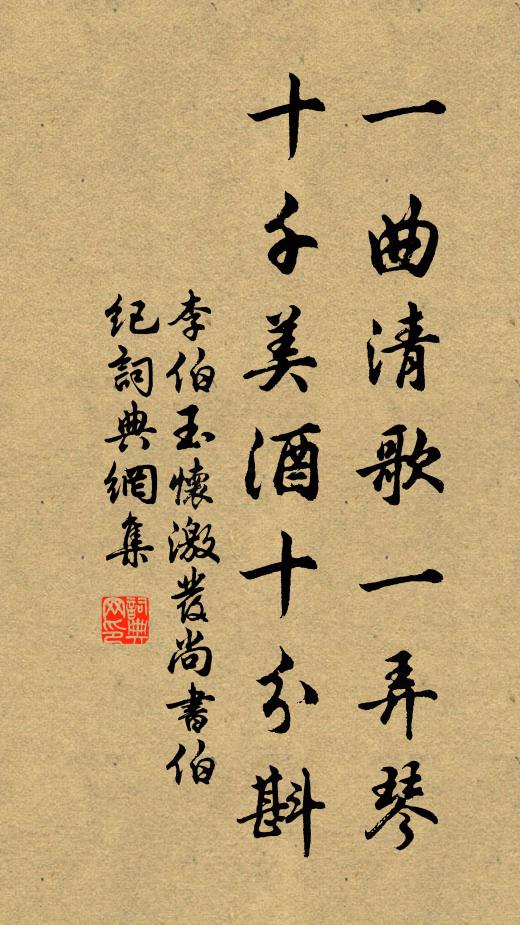 一曲清歌一弄琴
十千美酒十分斟
李伯玉懷激發尚書伯
紀詞典網集
詞典网印